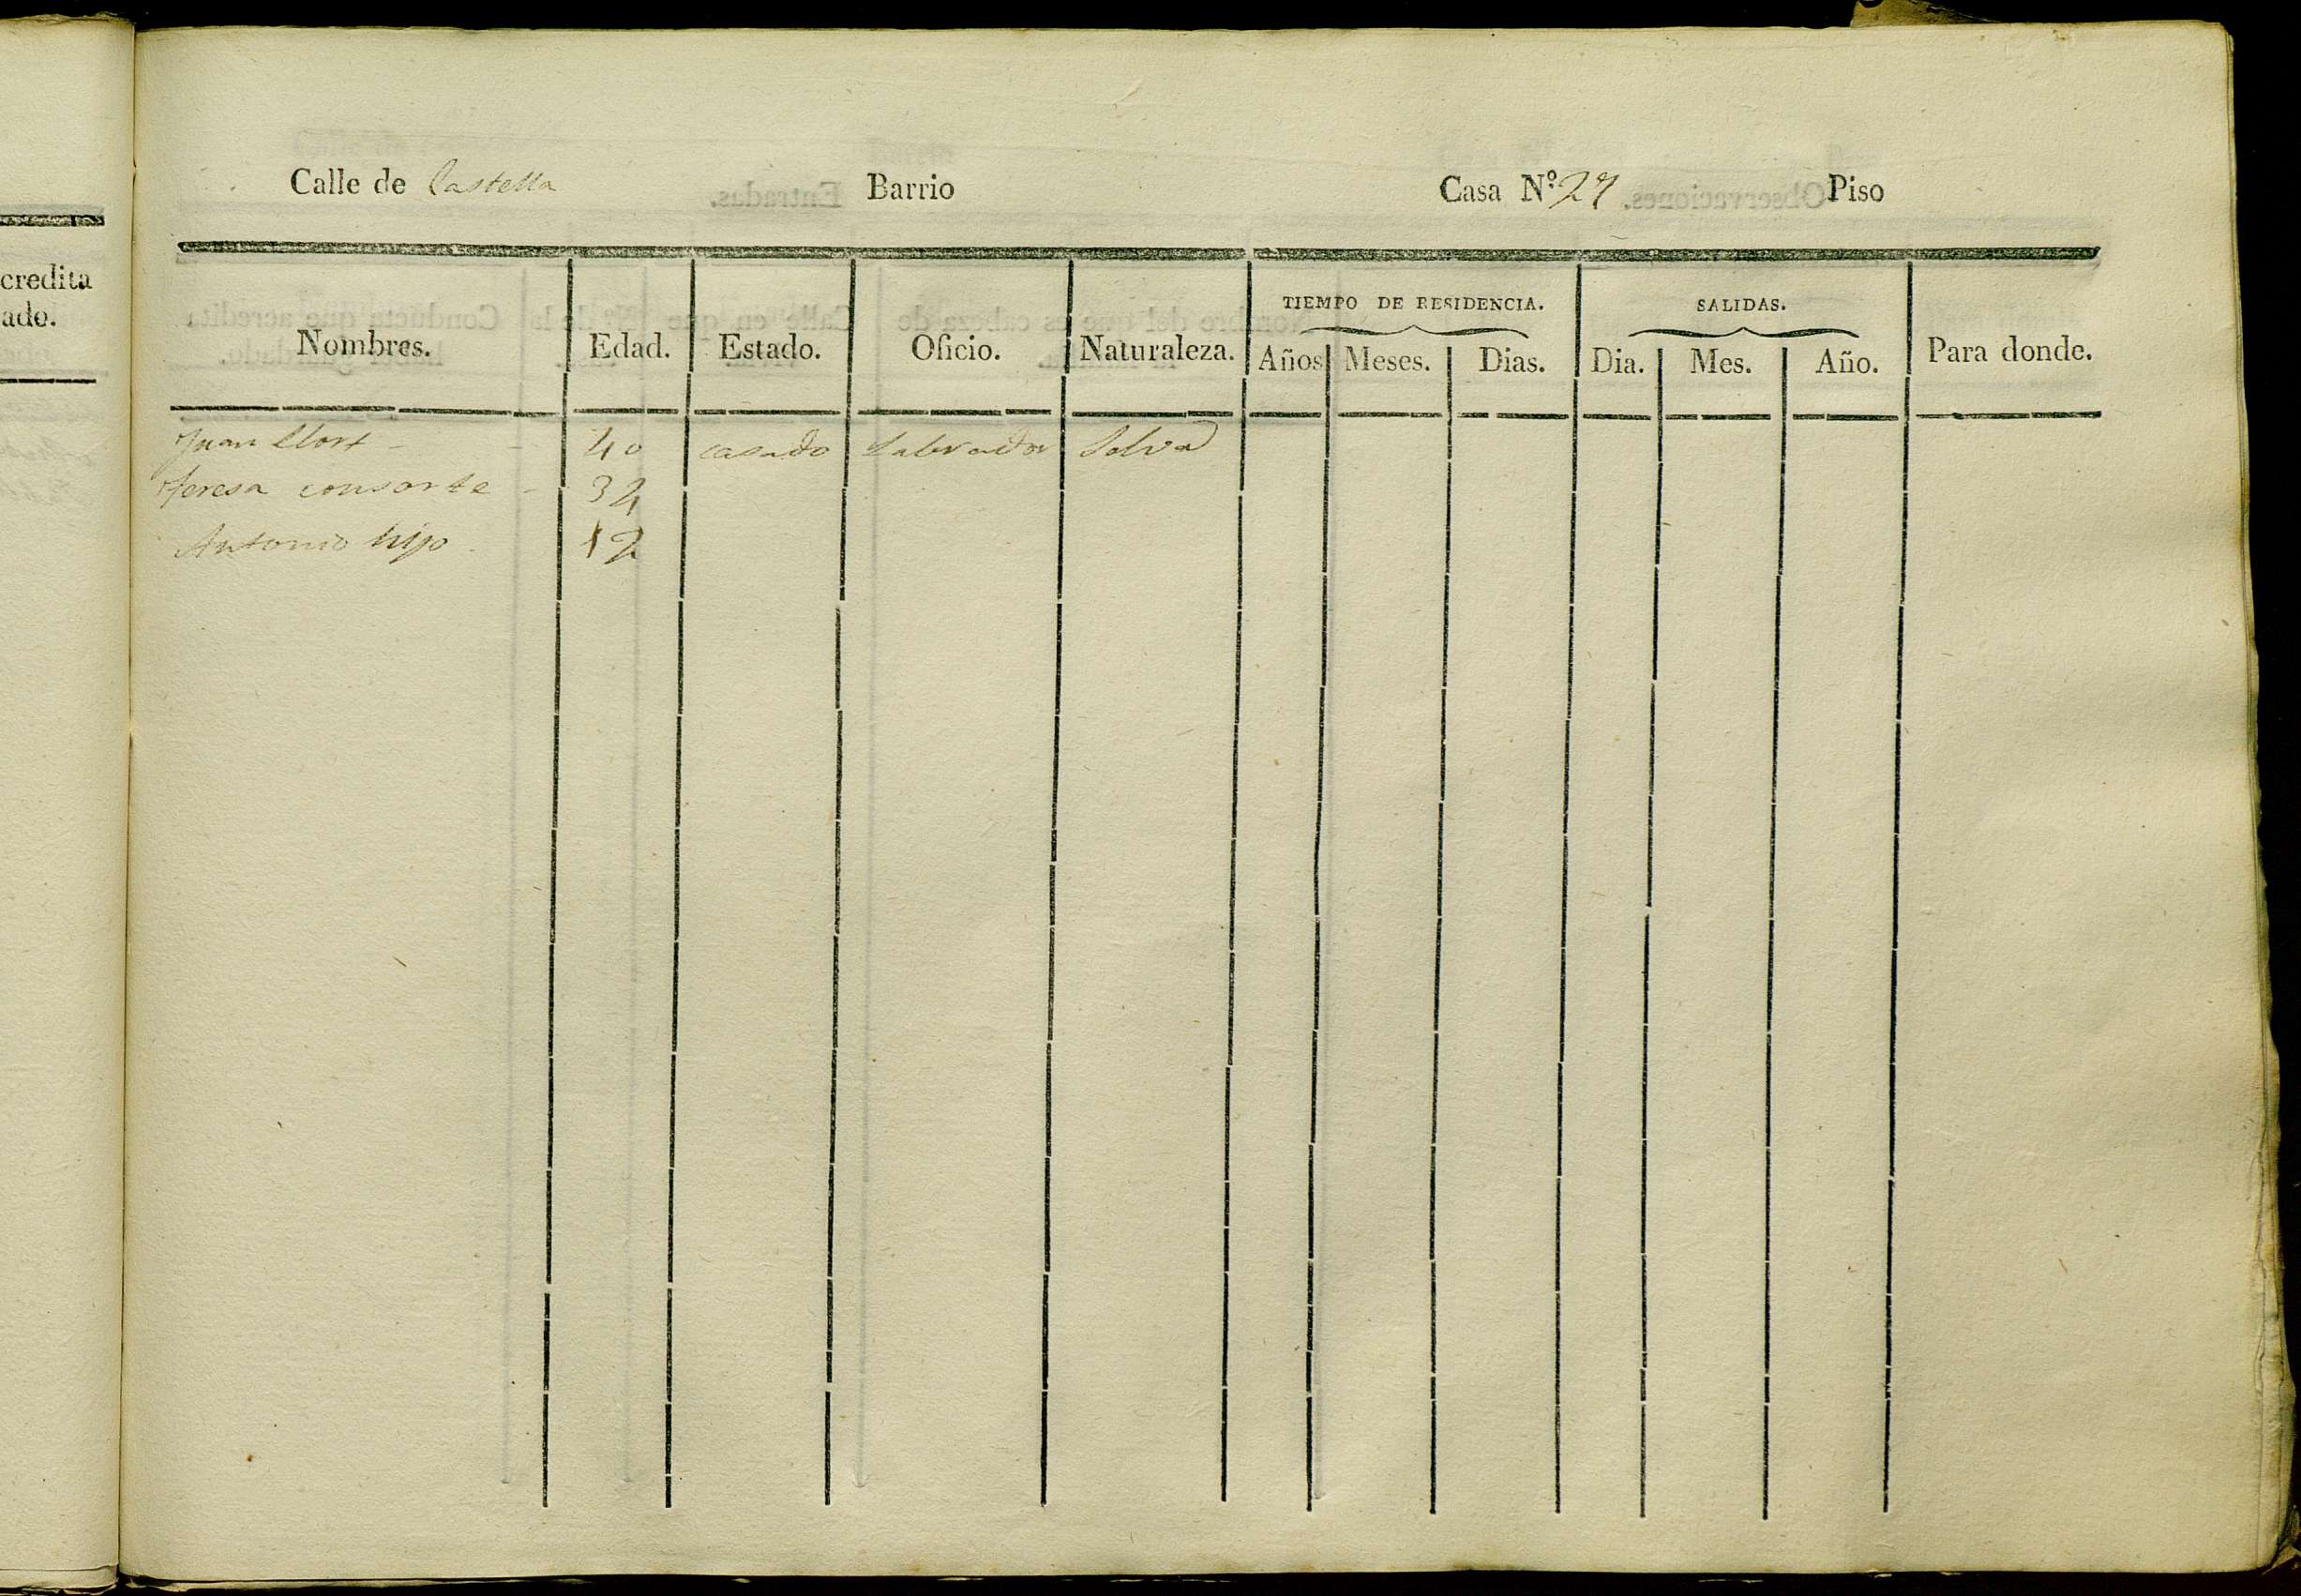 credita
ado.
Calle de Castella Barrio Casa Nº 27 Piso
TIEMPO DE RESIDENCIA. SALIDAS.
Nombres. Edad. Estado. Oficio. Naturaleza. Años Meses. Dias. Dia. Mes. Año. Para donde.
Juan Llort 40 casado Labrador Selva
Teresa consorte 32
Antonio hijo 12